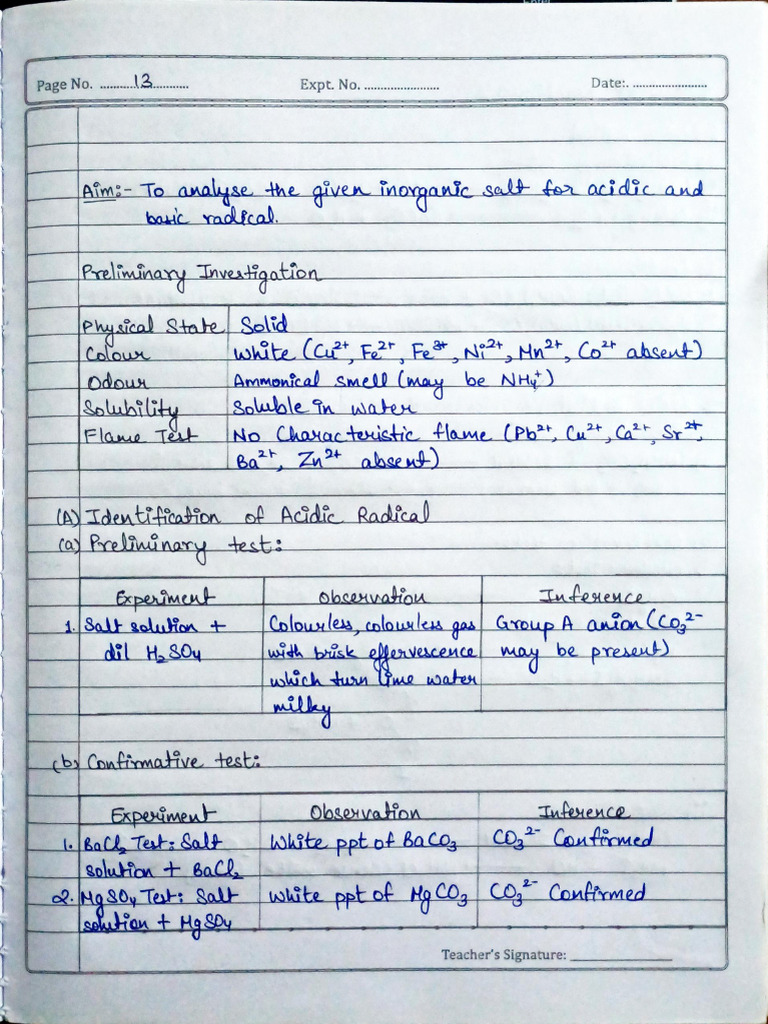 Page No. ...........13........... Expt. No. ........................ Date:. ........................
Aim:- To analyse the given inorganic salt for acidic and
basic radical.
Preliminary Investigation
Physical State Solid
Colour White (Cu²⁺, Fe²⁺, Fe³⁺, Ni²⁺, Mn²⁺, Co²⁺ absent)
Odour Ammonical smell (may be NH₄⁺)
Solubility Soluble in water
Flame Test No Characteristic flame (Pb²⁺, Cu²⁺, Ca²⁺, Sr²⁺,
Ba²⁺, Zn²⁺ absent)
(A) Identification of Acidic Radical
(a) Preliminary test:
Experiment Observation Inference
1. Salt solution + Colourless, colourless gas Group A anion (CO₃²⁻
dil H₂SO₄ with brisk effervescence may be present)
which turn lime water
milky
(b) Confirmative test:
Experiment Observation Inference
1. BaCl₂ Test: Salt White ppt of BaCO₃ CO₃²⁻ Confirmed
solution + BaCl₂
2. MgSO₄ Test: Salt White ppt of MgCO₃ CO₃²⁻ Confirmed
solution + MgSO₄
Teacher's Signature: _______________